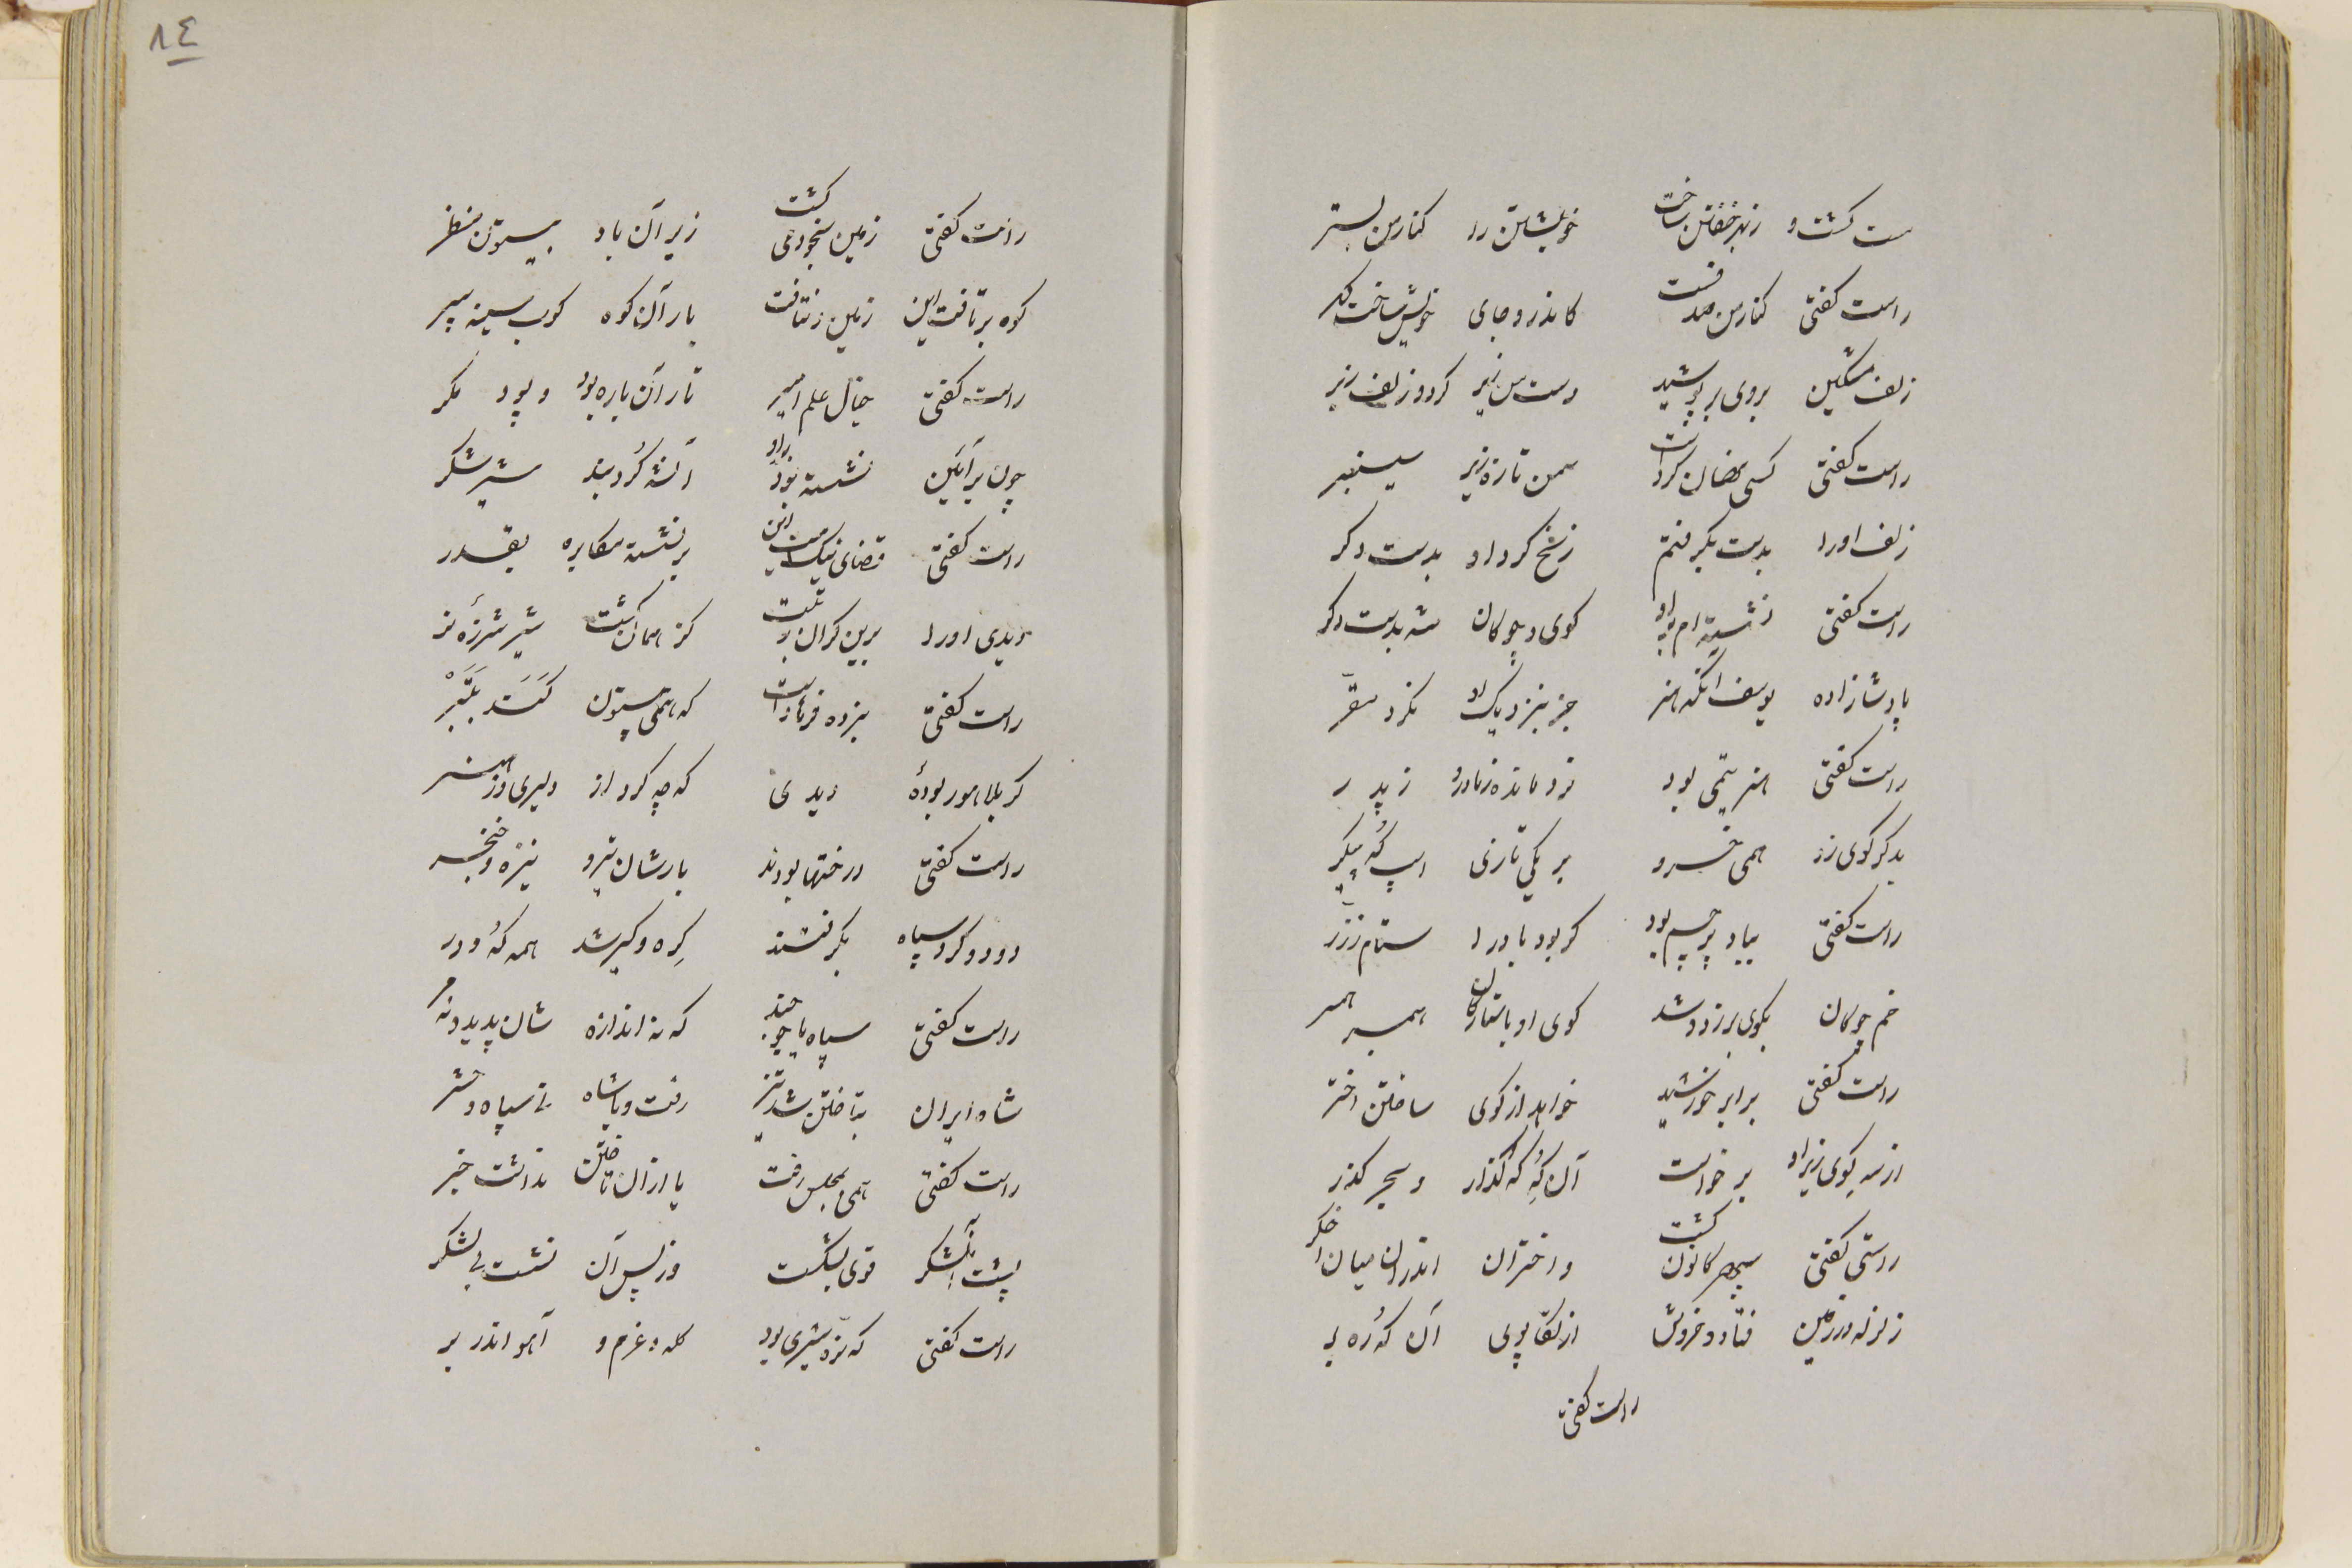 مست گشت و ز بهر خفتن ساخت خویشتن را کنار من بستر
راست گفتی کنار من صدفست کاندرو جای خویش ساخت گهر
زلف مشکین بروی بر پوشید دست من زیر کرد و زلف زبر
راست گفتی کسی نهان کرداست سمن تازه زیر سیسنبر
زلف او را بدست بگرفتم زنخ گرد او بدست دگر
راست گفتی نشسته ام بر او گوی و چوگان شه بدست دگر
پادشازاده یوسف آنکه هنر جز بنزدیک او نکرد مقرّ
راست گفتی هنر یتیمی بود فرد مانده ز مادر و ز پدر
بد گر گوی زد همی خسرو بر یکی تازی اسپ که پیکر
راست گفتی بباد بر جم بود گر بود باد را ستام ز زر
خم چوگان بگوی بر زد و شد گوی او با ستارگان همبر
راست گفتی برابر خورشید خواهد از گوی ساختن اختر
از سم گوی زیر او برخاست آن که که گذار و بحر گذر
راستی گفتی سپهر کانون گشت و اختران اندران میان اخگر
زلزله در زمین فتاد و خروش از تکاپوی آن که ره بر
راست گفتی
٨٤
راست گفتی زمین بخود میگشت زیر آن باد بیستون منظر
کوه بر تافت این زمین و نتافت بار آن کوه کوب سینه سپر
راست گفتی خیال علم امیر تار آن باره بود و پود مگر
چون بر آنگین نشسته بود او آنشه گرد بند شیر شکر
راست گفتی قضای نیکست این بر نشسته مکابره بقدر
دیدی او را برین گران رتبت کز همان کشت شیر شرزهٔ نر
راست گفتی نبرده فرهادست که همی بیستون کَنَد بتَبَرْ
گر بلاهور بودهٔ دیدی که چه کرد از دلیری و ز هنر
راست گفتی درختها بودند بارشان تیر و نیزه و خنجر
دود و گرد سپاه بگرفتند که و گیر شد همه که و در
راست گفتی سپاه یاجوجند که نه اندازه شان پدید و نه مر
شاه ایران بتاختن شد تیز رفت و با شاه نی سپاه و حشر
راست گفتی همی بمجلس رفت یا ازان تاختن نداشت خبر
پشت آن لشکر قوی بشکست وز پس آن نشست بی لشکر
راست گفتی که نره شیری بود گله و غرم و آهو اندر بر